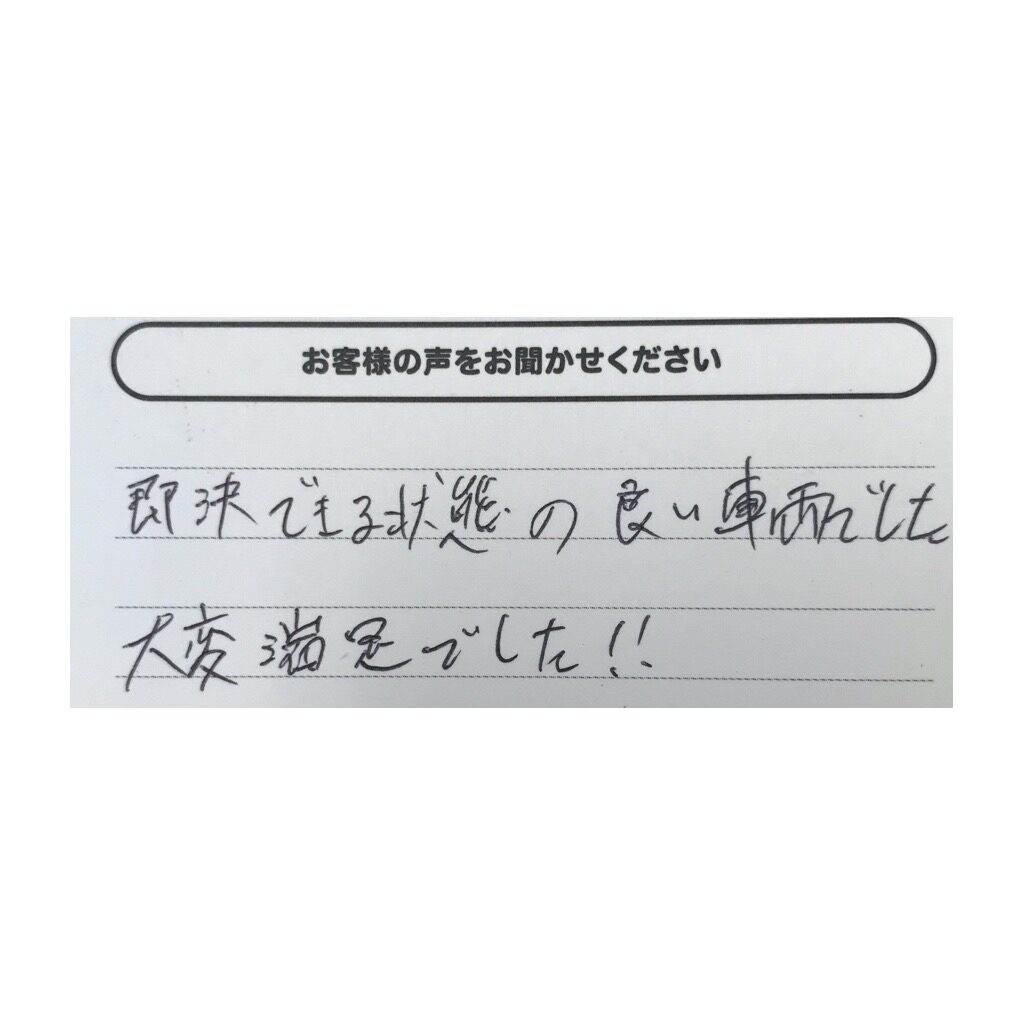 お客様の声をお聞かせください
即決できる状態の良い車両でした
大変満足でした!!